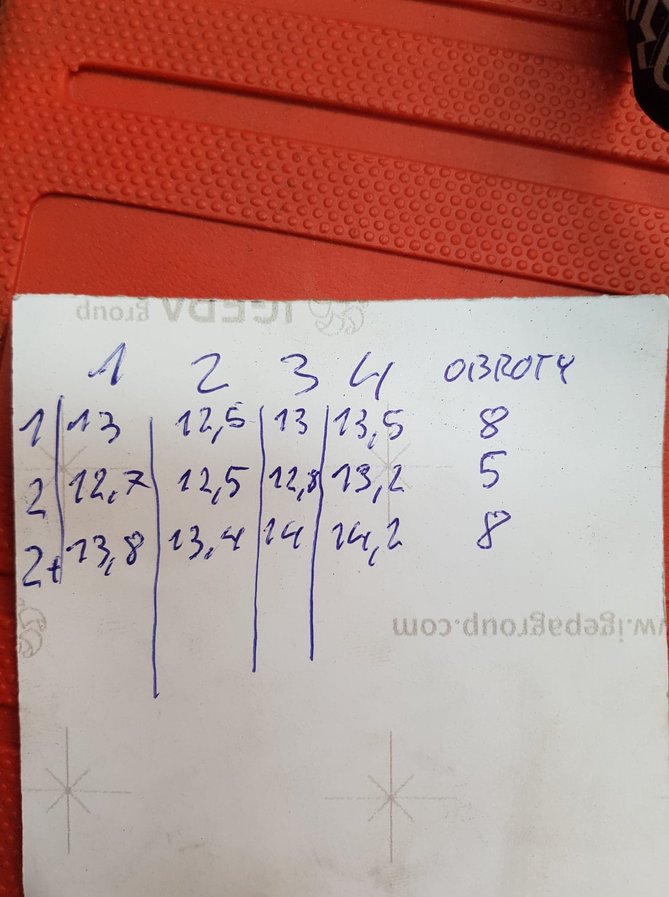 IGEPA group
1 2 3 4 OBROTY
1 13 12,5 13 13,5 8
2 12,7 12,5 12,8 13,2 5
2+ 13,8 13,4 14 14,2 8
www.igepagroup.com